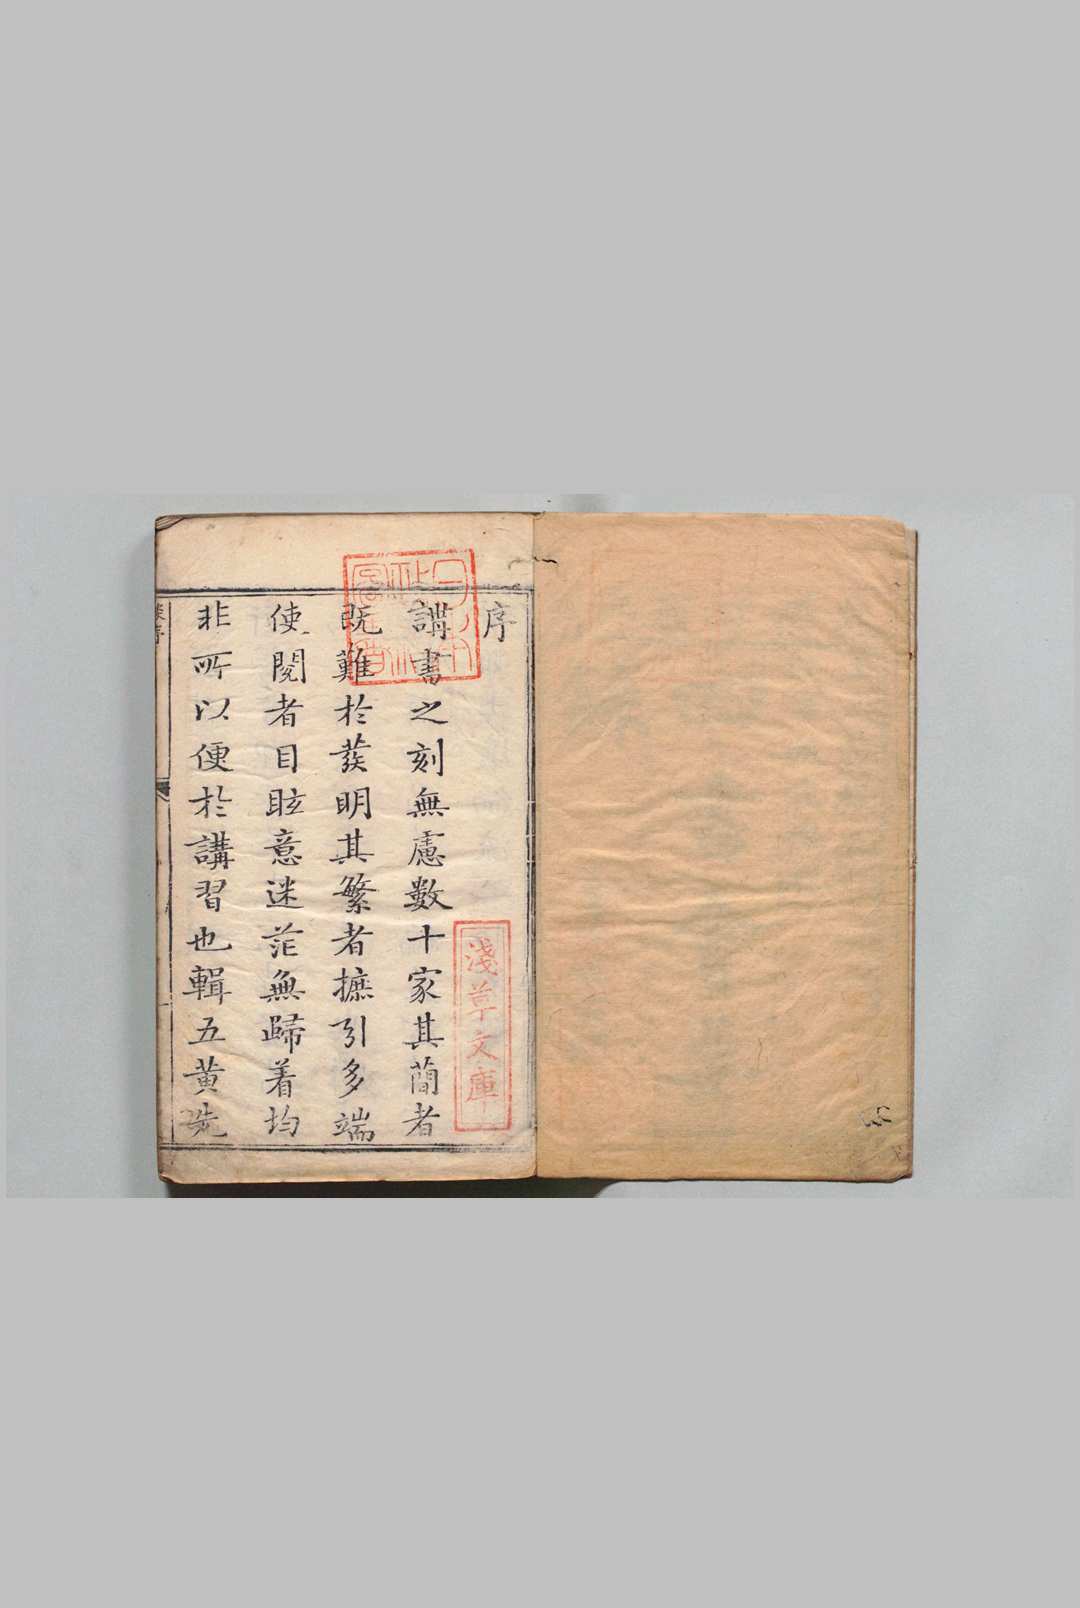 序
講書之刻無慮數十家其簡者
既難於發明其繁者摭引多端
使閱者目眩意迷茫無歸着均
非所以便於講習也輯五黃先
淺草文庫
22